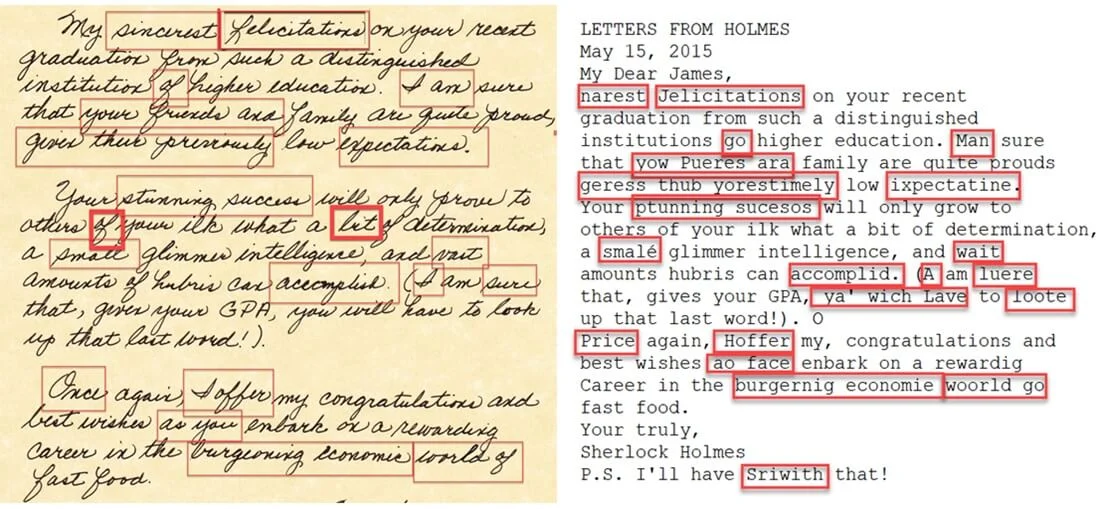 My sincerest felicitations on your recent
graduation from such a distinguished
institution of higher education. I am sure
that your friends and family are quite proud,
given their previously low expectations.
Your stunning success will only prove to
others of your ilk what a bit of determination,
a small glimmer intelligence, and vast
amounts of hubris can accomplish. (I am sure
that, given your GPA, you will have to look
up that last word!).
Once again, I offer my congratulations and
best wishes as you embark on a rewarding
career in the burgeoning economic world of
fast food.
LETTERS FROM HOLMES
May 15, 2015
My Dear James,
narest Jelicitations on your recent
graduation from such a distinguished
institutions go higher education. Man sure
that yow Pueres ara family are quite prouds
geress thub yorestimely low ixpectatine.
Your ptunning sucesos will only grow to
others of your ilk what a bit of determination,
a smalé glimmer intelligence, and wait
amounts hubris can accomplid. (A am luere
that, gives your GPA, ya' wich Lave to loote
up that last word!). O
Price again, Hoffer my, congratulations and
best wishes ao face enbark on a rewardig
Career in the burgernig economie woorld go
fast food.
Your truly,
Sherlock Holmes
P.S. I'll have Sriwith that!